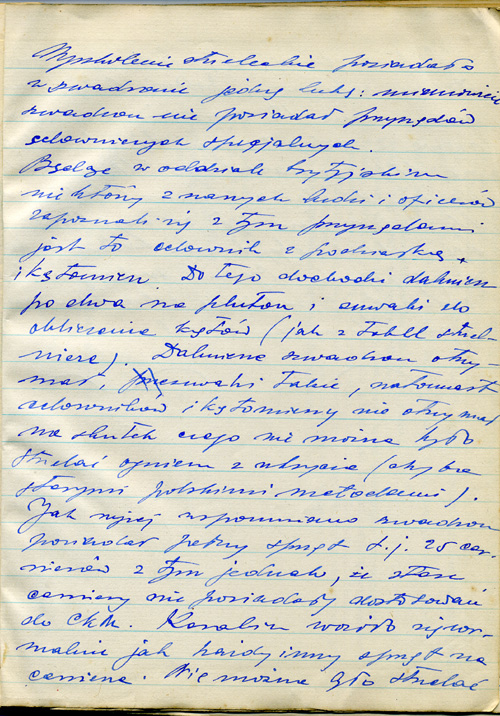 Wyszkolenie strzeleckie posiadało
w szwadronie jedną lukę: mianowicie
szwadron nie posiadał przyrządów
celowniczych specjalnych.
Będąc w oddziale brytyjskim
niektórzy z naszych ludzi i oficerów
zapoznali się z tym przyrządami
jest to celownik z podziałką
i kątomierz. Do tego dochodzi dalmierz
po dwa na pluton i suwaki do
obliczania kątów (jak z tabel strzel-
niczą). Dalmierze szwadron otrzy-
mał, suwaki także, natomiast
celowników i kątomierzy nie otrzymał
na skutek czego nie można było
strzelać ogniem z ukrycia (chyba
starymi polskimi metodami).
Jak wyżej wspomniano szwadron
posiadał pełny sprzęt t.j. 25 car-
rierów z tym jednak, że stare
carriery nie posiadały dostosowań
do CKM. Karabin woziło się nor-
malnie jak każdy inny sprzęt na
carrierze. Nie można było strzelać